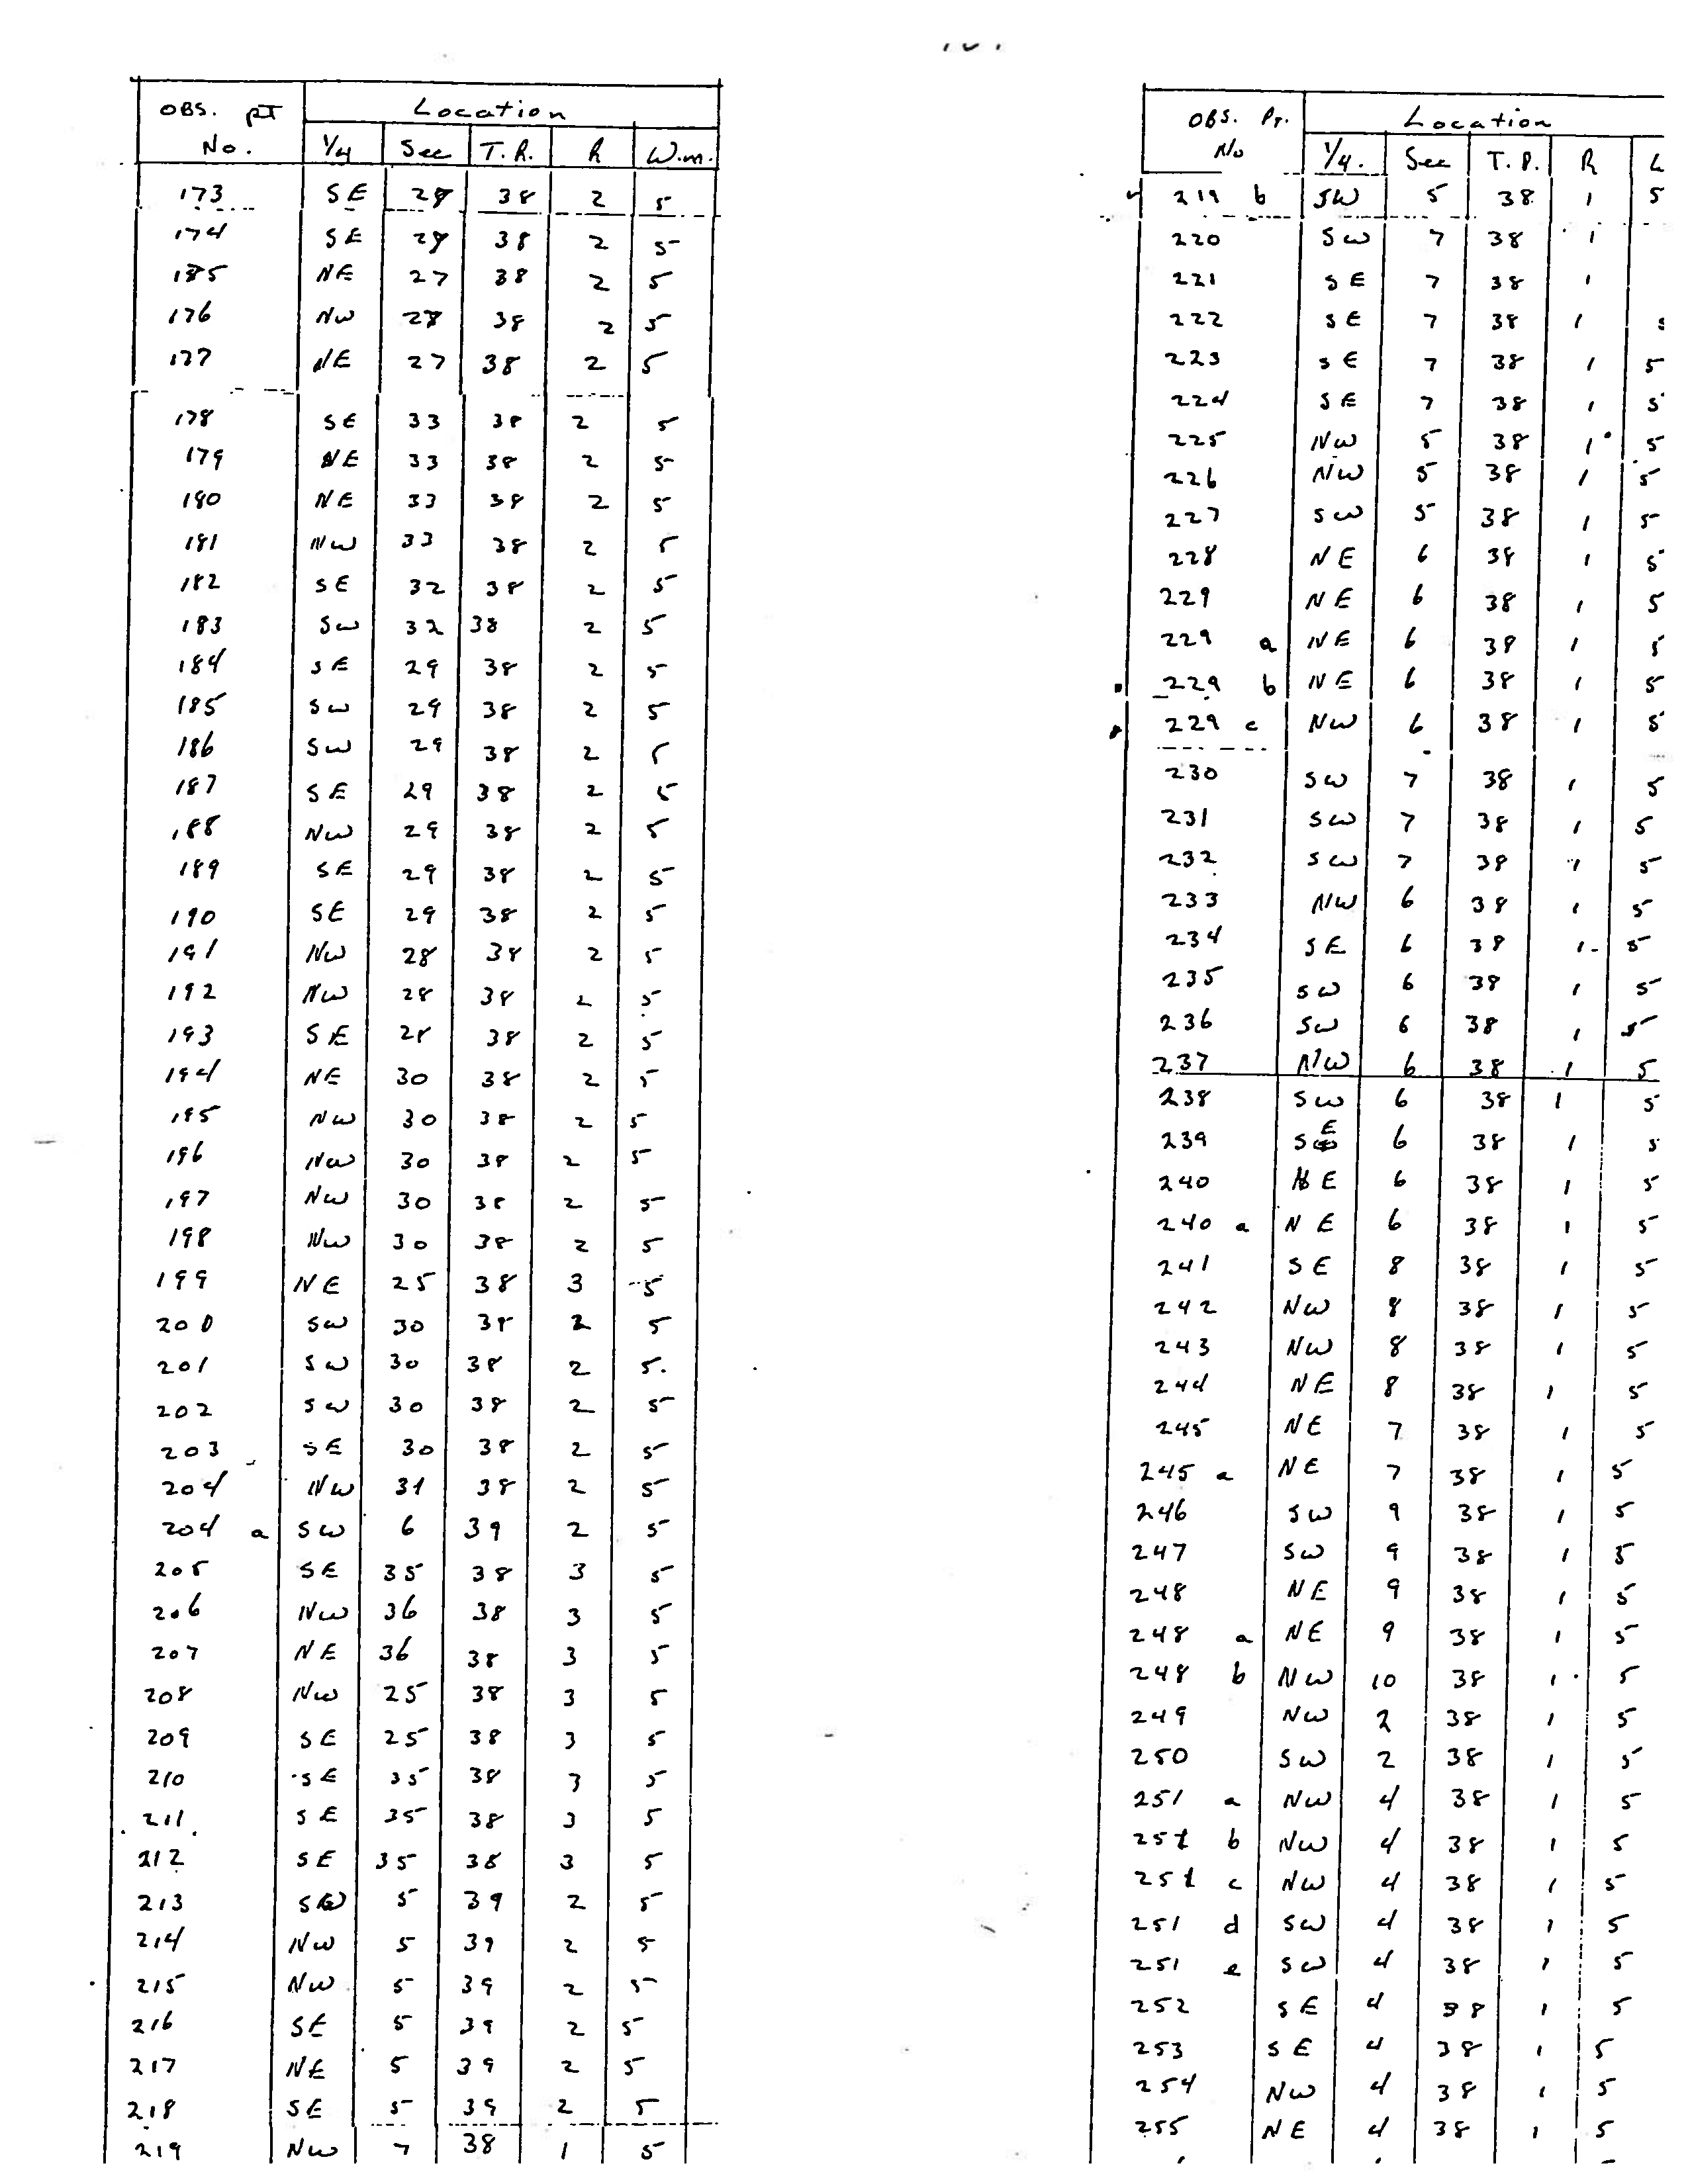 OBS. PT Location
No. 1/4 Sec T.R. R W.m.
173 SE 28 38 2 5
174 SE 28 38 2 5
185 NE 27 38 2 5
176 NW 28 38 2 5
177 NE 27 38 2 5
178 SE 33 38 2 5
179 NE 33 38 2 5
180 NE 33 38 2 5
181 NW 33 38 2 5
182 SE 32 38 2 5
183 SW 32 38 2 5
184 SE 29 38 2 5
185 SW 29 38 2 5
186 SW 29 38 2 5
187 SE 29 38 2 5
188 NW 29 38 2 5
189 SE 29 38 2 5
190 SE 29 38 2 5
191 NW 28 38 2 5
192 NW 28 38 2 5
193 SE 28 38 2 5
194 NE 30 38 2 5
195 NW 30 38 2 5
196 NW 30 38 2 5
197 NW 30 38 2 5
198 NW 30 38 2 5
199 NE 25 38 3 5
200 SW 30 38 2 5
201 SW 30 38 2 5.
202 SW 30 38 2 5
203 SE 30 38 2 5
204 NW 31 38 2 5
204 a SW 6 39 2 5
205 SE 35 38 3 5
206 NW 36 38 3 5
207 NE 36 38 3 5
208 NW 25 38 3 5
209 SE 25 38 3 5
210 SE 35 38 3 5
211 SE 35 38 3 5
212 SE 35 38 3 5
213 SW 5 39 2 5
214 NW 5 39 2 5
215 NW 5 39 2 5
216 SE 5 39 2 5
217 NE 5 39 2 5
218 SE 5 39 2 5
219 NW 7 38 1 5
OBS. PT. Location
No 1/4. Sec T.P. R
219 b SW 5 38 1 5
220 SW 7 38 1
221 SE 7 38 1
222 SE 7 38 1 5
223 SE 7 38 1 5
224 SE 7 38 1 5
225 NW 5 38 1 5
226 NW 5 38 1 5
227 SW 5 38 1 5
228 NE 6 38 1 5
229 NE 6 38 1 5
229 a NE 6 38 1 5
229 b NE 6 38 1 5
229 c NW 6 38 1 5
230 SW 7 38 1 5
231 SW 7 38 1 5
232 SW 7 38 1 5
233 NW 6 38 1 5
234 SE 6 38 1 5
235 SW 6 38 1 5
236 SW 6 38 1 5
237 NW 6 38 1 5
238 SW 6 38 1 5
239 SE 6 38 1 5
240 NE 6 38 1 5
240 a NE 6 38 1 5
241 SE 8 38 1 5
242 NW 8 38 1 5
243 NW 8 38 1 5
244 NE 8 38 1 5
245 NE 7 38 1 5
245 a NE 7 38 1 5
246 SW 9 38 1 5
247 SW 9 38 1 5
248 NE 9 38 1 5
248 a NE 9 38 1 5
248 b NW 10 38 1 5
249 NW 2 38 1 5
250 SW 2 38 1 5
251 a NW 4 38 1 5
251 b NW 4 38 1 5
251 c NW 4 38 1 5
251 d SW 4 38 1 5
251 e SW 4 38 1 5
252 SE 4 38 1 5
253 SE 4 38 1 5
254 NW 4 38 1 5
255 NE 4 38 1 5